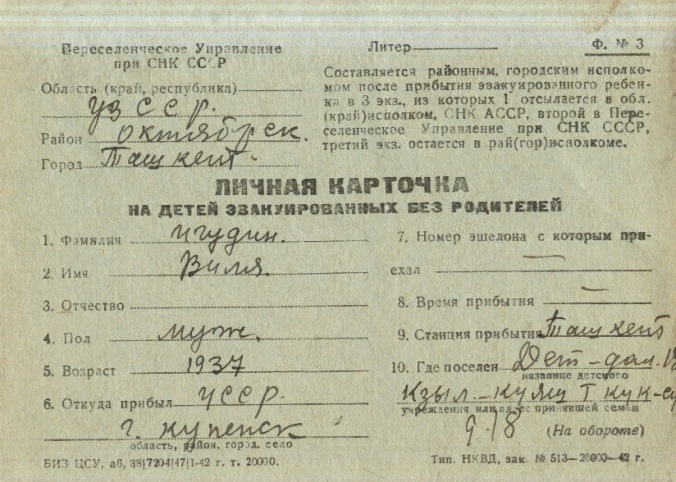 Переселенческое Управление
при СНК СССР
Литер
Ф. № 3
Область (край, республика)
УзССР.
Район Октябрьск.
Город Ташкент.
Составляется районным, городским исполко-
мом после прибытия эвакуированного ребен-
ка в 3 экз., из которых 1 отсылается в обл.
(край)исполком, СНК АССР, второй в Пере-
селенческое Управление при СНК СССР,
третий экз. остается в рай(гор)исполкоме.
ЛИЧНАЯ КАРТОЧКА
НА ДЕТЕЙ ЭВАКУИРОВАННЫХ БЕЗ РОДИТЕЛЕЙ
1. Фамилия Игудин.
2. Имя Виля.
3. Отчество
4. Пол муж.
5. Возраст 1937
6. Откуда прибыл УССР.
г. Купенск
область, район. город. село
7. Номер эшелона с которым при-
ехал —
8. Время прибытия —
9. Станция прибытия Ташкент
10. Где поселен Дет-дом.
название детского
Кзыл-
учреждения или адрес принявшей семьи
9/8 (На обороте)
БИЗ ЦСУ, а6, 38|7204|47|1-42 г. т. 20000.
Тип. НКВД, зак. № 513—20000—42 г.